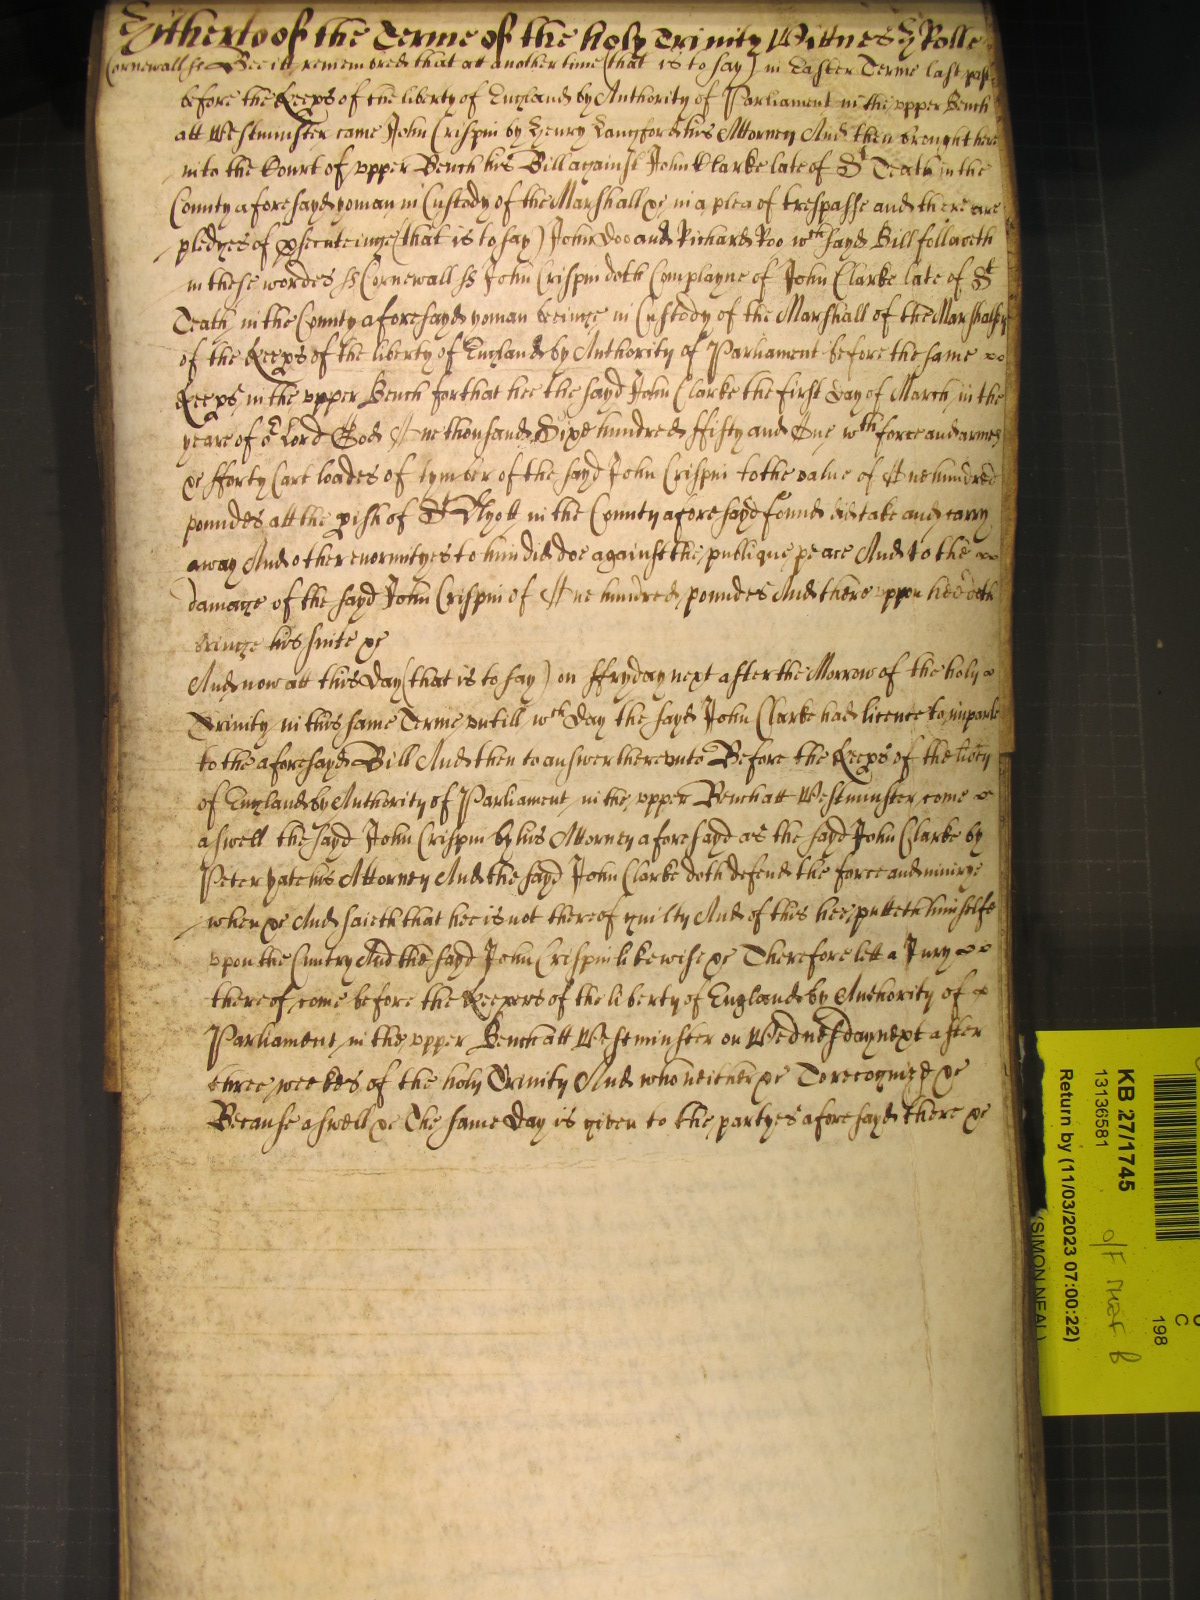 Hitherto of the Terme of the holy Trinity Wittnes H Rolle
Cornewall ss Bee it remembred that att another time (that is to say) in Easter Terme last past
before the Keeps of the liberty of England by Authority of Parliament in the vpper Bench
att Westminster came John Crispin by Henry Langford his Attorney And then brought here
into the Court of vpper Bench his Bill against John Clarke late of St Teath in the
County aforesayd yoman in Custody of the Marshall &c in a plea of trespasse and there are
pledges of psecuteinge (that is to say) John Doo and Richard Roo wch sayd Bill followeth
in these wordes ss Cornewall ss John Crispin doth Complayne of John Clarke late of St
Teath in the County aforesayd yoman beeinge in Custody of the Marshall of the Marshalsey
of the Keeps of the liberty of England by Authority of Parliament before the same
Keeps in the vpper Bench for that hee the sayd John Clarke the first day of March in the
yeare of or Lord God One thousand Sixe hundred ffifty and One wth force and armes
&c fforty Cart loades of tymber of the sayd John Crispin to the value of One hundred
poundes att the pish of St Nyott in the County aforesayd found did take and carry
away And other enormityes to him did doe against the publique peace And to the
damage of the sayd John Crispin of One hundred poundes And there vppon hee doth
bringe his suite &c
And now att this day (that is to say) on ffryday next after the Morrow of the holy
Trinity in this same Terme vntill wch day the sayd John Clarke had licence to imparle
to the aforesayd Bill And then to answer therevnto Before the Keeps of the libty
of England by Authority of Parliament in the vpper Bench att Westminster come
aswell the sayd John Crispin by his Attorney aforesayd as the sayd John Clarke by
Peter Hatc his Attorney And the sayd John Clarke doth defend the force and iniurye
when &c And saieth that hee is not thereof guilty And of this hee putteth himselfe
vpon the Cuntry And the sayd John Crispin likewise &c Therefore lett a Jury
thereof come before the Keepers of the liberty of England by Authority of
Parliament in the vpper Bench att Westminster on Wednesday next after
three weekes of the holy Trinity And who neither &c To recognize &c
Because aswell &c The same day is given to the partyes aforesayd there &c
KB 27/1745
13136581
Return by (11/03/2023 07:00:22)
(SIMON NEAL)
C
198